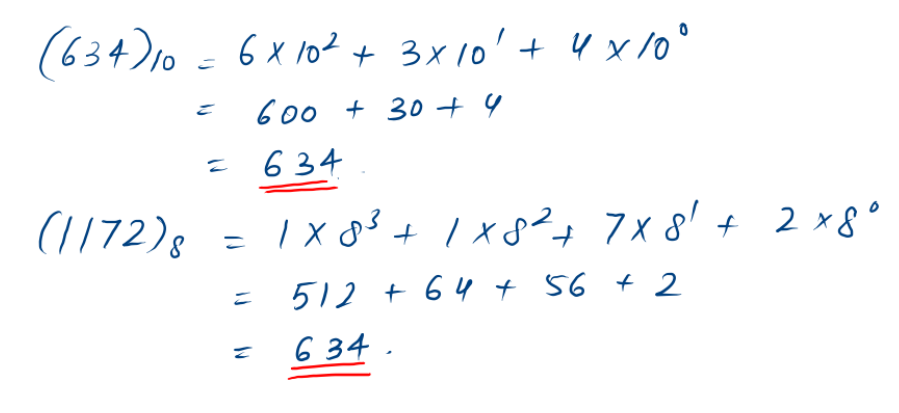 (634)₁₀ = 6 × 10² + 3 × 10¹ + 4 × 10⁰
= 600 + 30 + 4
= 634.
(1172)₈ = 1 × 8³ + 1 × 8² + 7 × 8¹ + 2 × 8⁰
= 512 + 64 + 56 + 2
= 634.